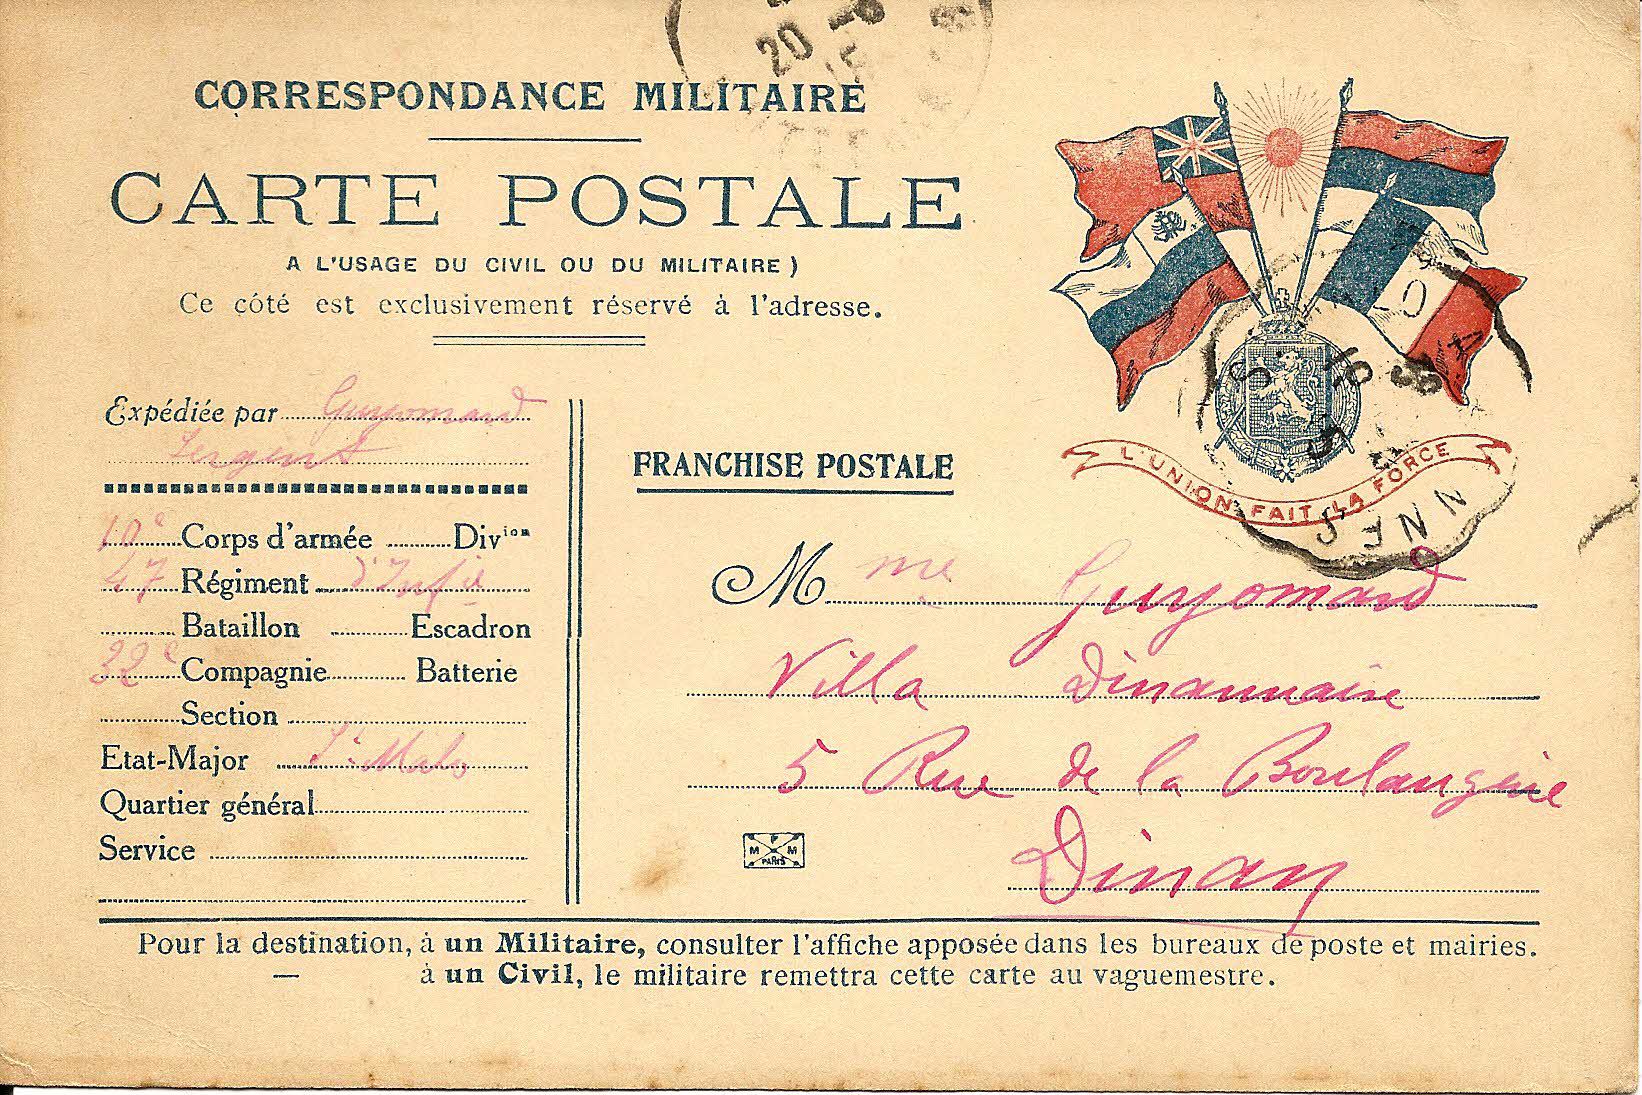 20
CORRESPONDANCE MILITAIRE
CARTE POSTALE
A L'USAGE DU CIVIL OU DU MILITAIRE )
Ce côté est exclusivement réservé à l'adresse.
L'UNION FAIT LA FORCE
Expédiée par Guyomard
Sergent
10e Corps d'armée Divion
47 Régiment d'Infie
Bataillon Escadron
32e Compagnie Batterie
Section
Etat-Major St-Malo
Quartier général
Service
FRANCHISE POSTALE
Mme Guyomard
Villa Dinannaise
5 Rue de la Boulangerie
Dinan
F
M M
PARIS
Pour la destination, à un Militaire, consulter l'affiche apposée dans les bureaux de poste et mairies.
— à un Civil, le militaire remettra cette carte au vaguemestre.